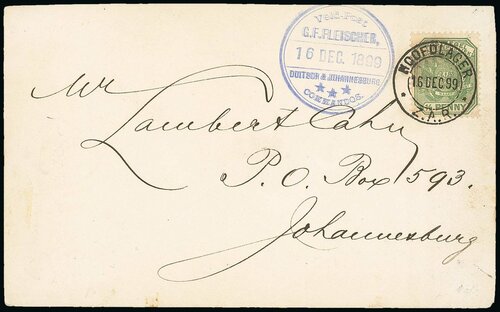 Veld-Post
C.F. FLEISCHER,
16 DEC. 1899
DUITSCH & JOHANNESBURG
COMMANDOS.
HOOFDLAGER
16 DEC 99
Z.A.R.
½ PENNY
Mr Lambert Cahn
P. O. Box 593.
Johannesburg